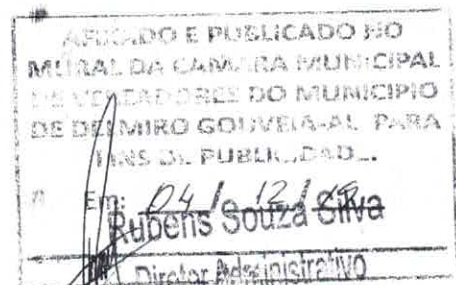 AFIXADO E PUBLICADO NO
MURAL DA CAMARA MUNICIPAL
DE VEREADORES DO MUNICIPIO
DE DELMIRO GOUVEIA-AL PARA
FINS DE PUBLICIDAD
Em: 04 / 12 /
Rubens Souza Silva
Diretor Administrativo